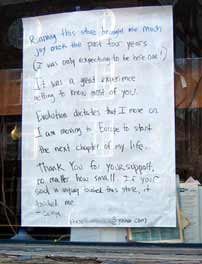 Running this store brought me much
joy over the past four years
(I was only expecting to be here one!)
It was a great experience
getting to know most of you.
Evolution dictates that I move on
I am moving to Europe to start
the next chapter of my life..
Thank You for your support,
no matter how small. If you
enjoyed this store, it
touched me